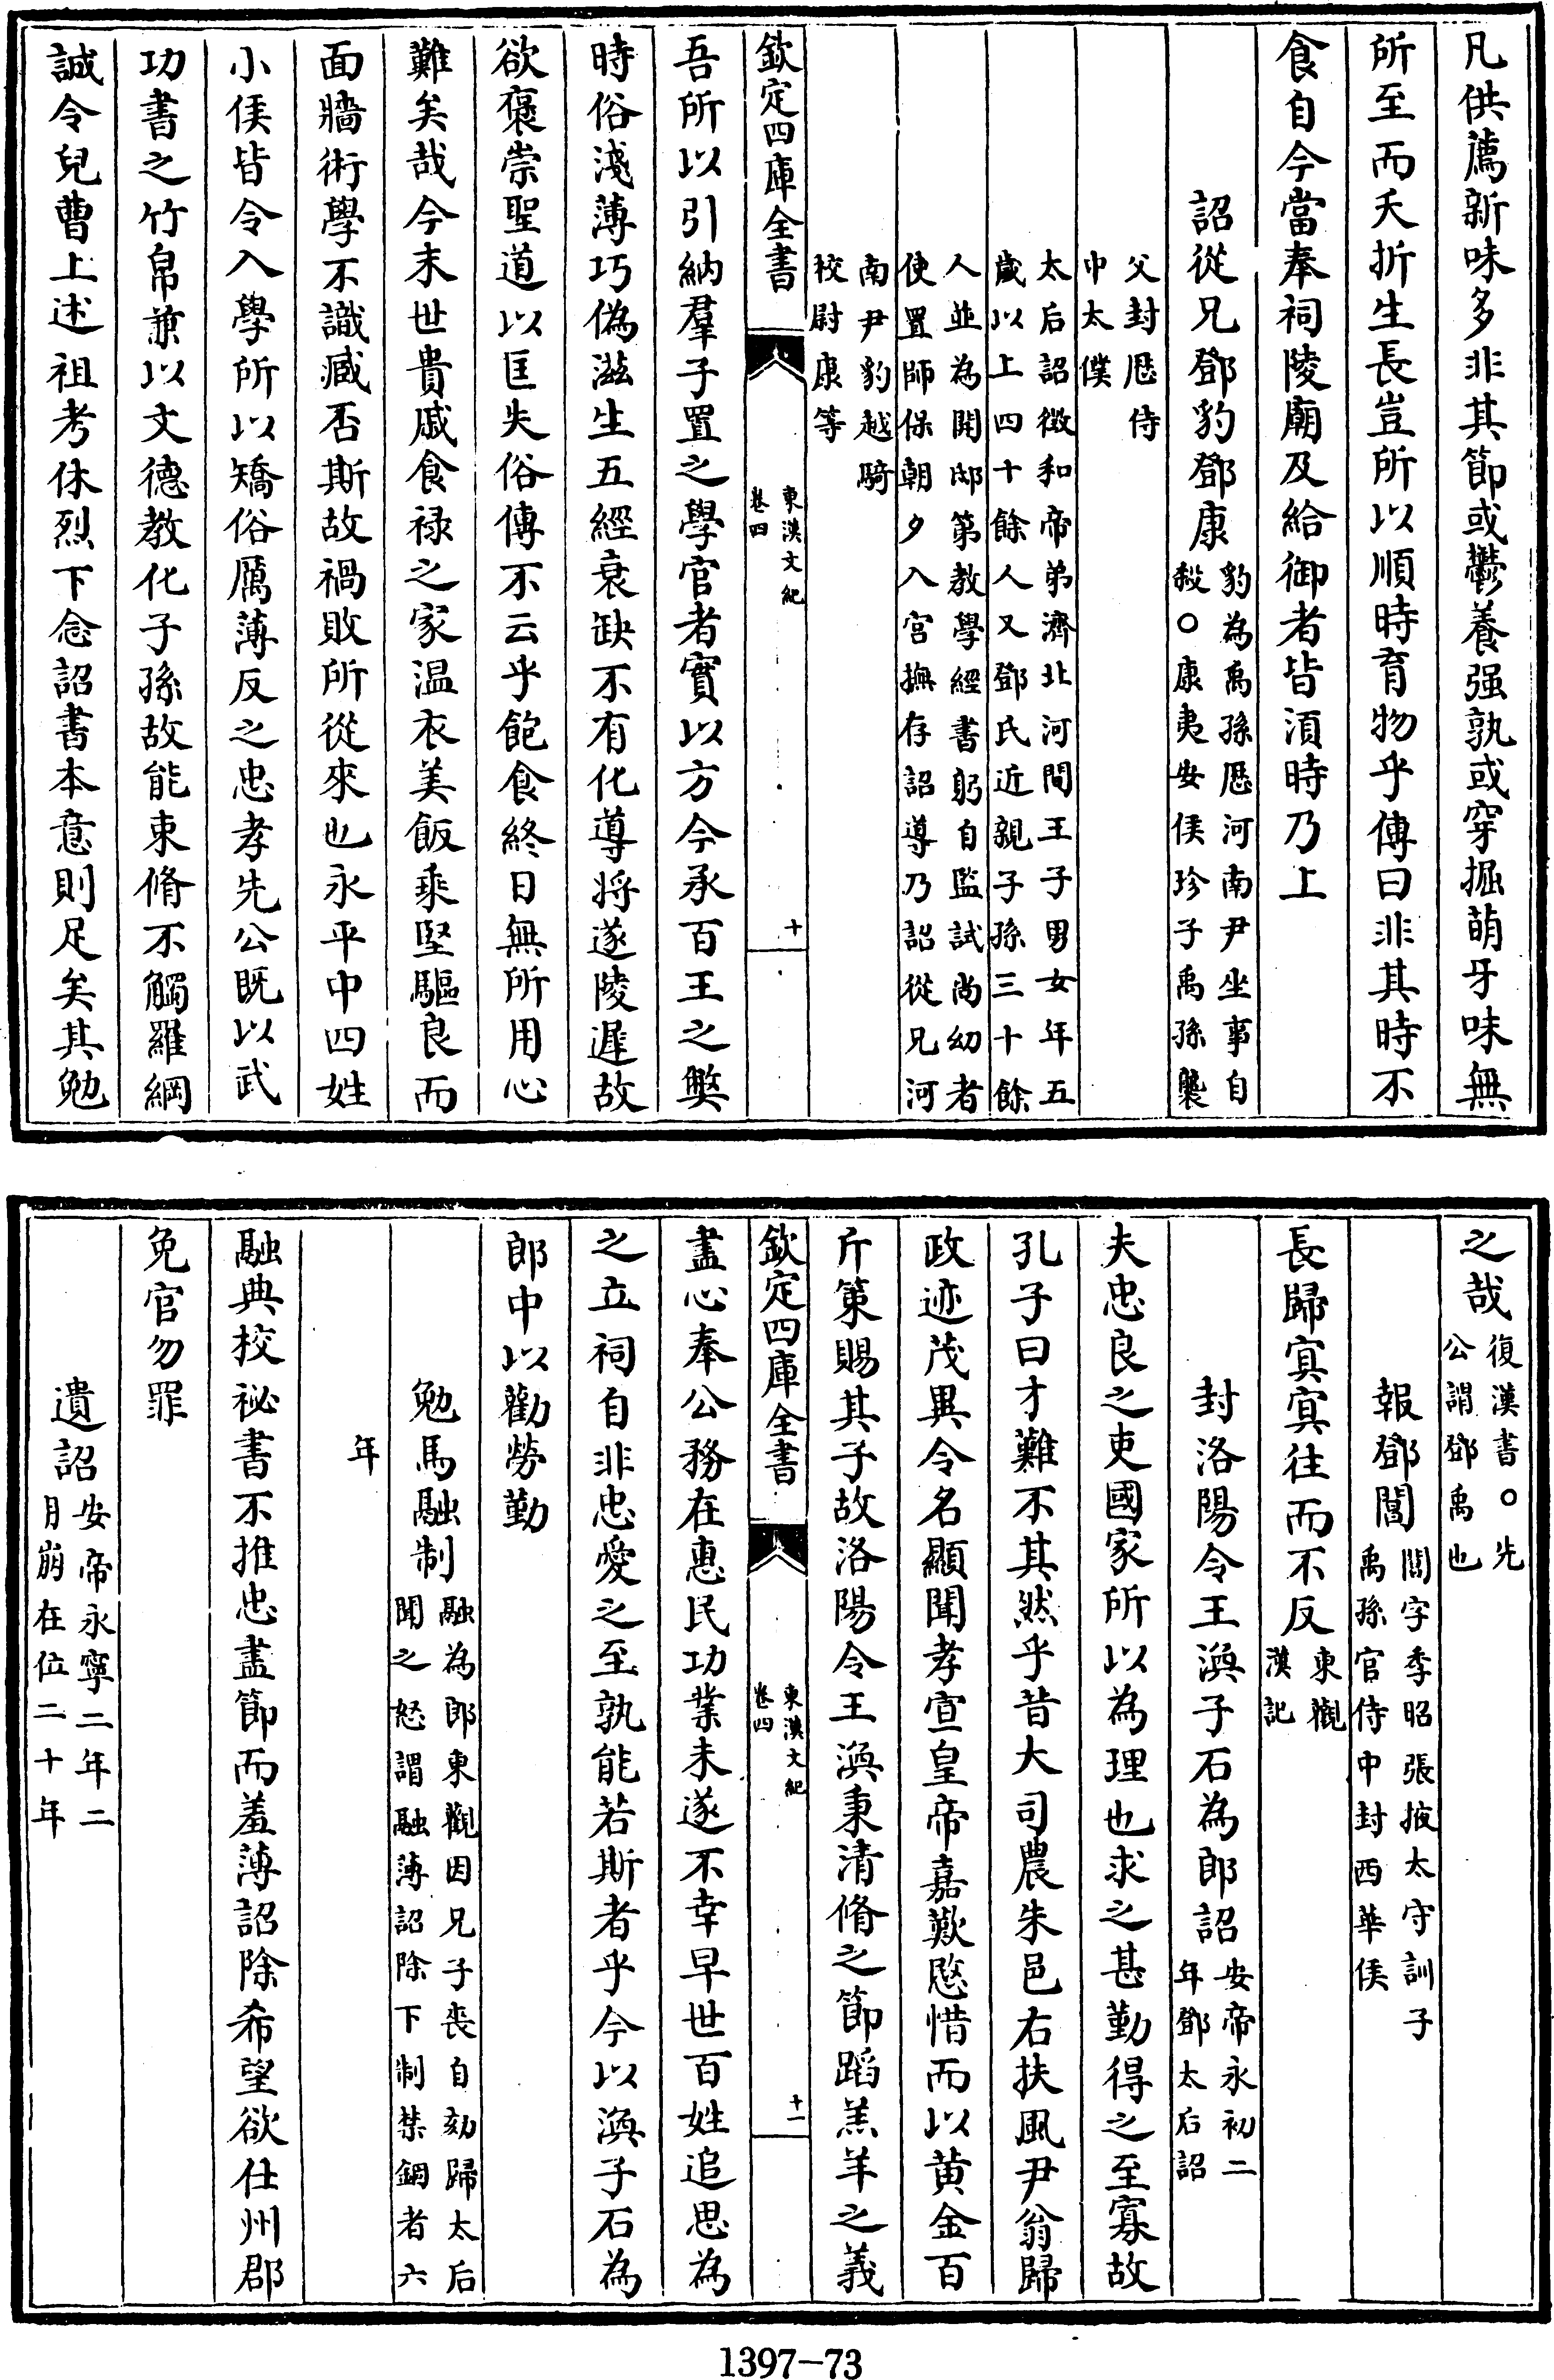 凡供薦新味多非其節或鬱養强孰或穿掘萌牙味無
所至而夭折生長豈所以順時育物乎傳曰非其時不
食自今當奉祠陵廟及給御者皆湏時乃上
詔從兄鄧豹鄧康豹為禹孫厯河南尹坐事自
殺○康夷安侯珍子禹孫襲
父封厯侍
中太僕
太后詔徴和帝弟濟北河間王子男女年五
歲以上四十餘人又鄧氏近親子孫三十餘
人並為開邸第教學經書躬自監試尚幼者
使置師保朝夕入宫撫存詔導乃詔從兄河
南尹豹越騎
校尉康等
欽定四庫全書
東漢文紀
卷四
十
吾所以引納羣子置之學官者實以方今承百王之獘
時俗淺薄巧偽滋生五經衰缺不有化導将遂陵遲故
欲襃崇聖道以匡失俗傳不云乎飽食終日無所用心
難矣哉今末世貴戚食禄之家温衣美飯乘堅驅良而
面牆術學不識臧否斯故禍敗所從來也永平中四姓
小侯皆令入學所以矯俗厲薄反之忠孝先公既以武
功書之竹帛兼以文德教化子孫故能束脩不觸羅網
誠令兒曹上述祖考休烈下念詔書本意則足矣其勉
之哉復漢書○先
公謂鄧禹也
報鄧閶閶字季昭張掖太守訓子
禹孫官侍中封西華侯
長歸寘寘往而不反東觀
漢記
封洛陽令王渙子石為郎詔安帝永初二
年鄧太后詔
夫忠良之吏國家所以為理也求之甚勤得之至寡故
孔子曰才難不其然乎昔大司農朱邑右扶風尹翁歸
政迹茂異令名顯聞孝宣皇帝嘉歎愍惜而以黄金百
斤策賜其子故洛陽令王渙秉清脩之節蹈羔羊之義
欽定四庫全書
東漢文紀
卷四
十一
盡心奉公務在惠民功業未遂不幸早世百姓追思為
之立祠自非忠愛之至孰能若斯者乎今以渙子石為
郎中以勸勞勤
勉馬融制融為郎東觀因兄子喪自劾歸太后
聞之怒謂融薄詔除下制禁錮者六
年
融典校祕書不推忠盡節而羞薄詔除希望欲仕州郡
免官勿罪
遺詔安帝永寧二年二
月崩在位二十年
1397-73